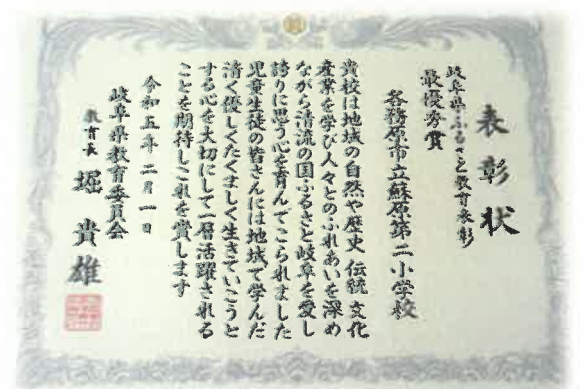 表彰状
岐阜県ふるさと教育表彰
最優秀賞
各務原市立蘇原第二小学校
貴校は地域の自然や歴史 伝統 文化
産業を学び人々とのふれあいを深め
ながら清流の国ふるさと岐阜を愛し
誇りに思う心を育んでこられました
児童生徒の皆さんには地域で学んだ
清く優しくたくましく生きていこうと
する心を大切にして一層活躍される
ことを期待しこれを賞します
令和五年二月一日
岐阜県教育委員会
教育長 堀 貴雄